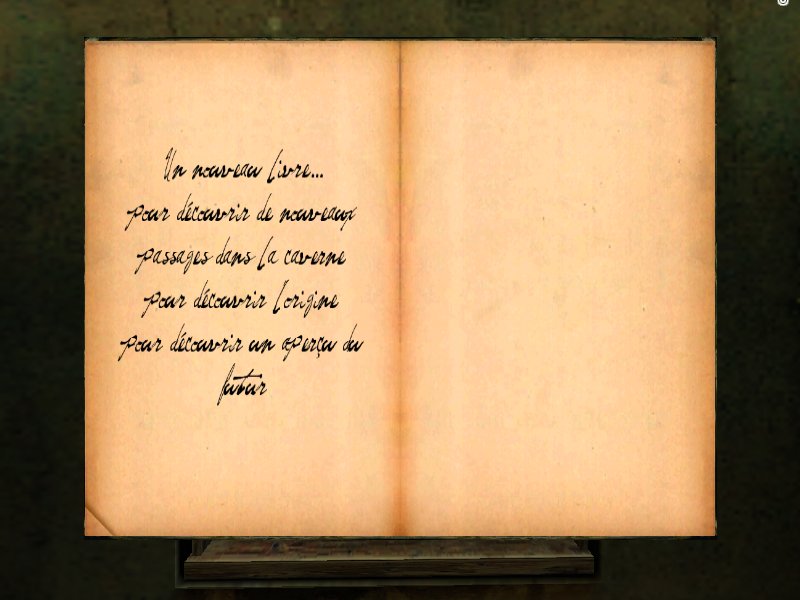 Un nouveau livre...
pour découvrir de nouveaux
passages dans la caverne
pour découvrir l'origine
pour découvrir un aperçu du
futur